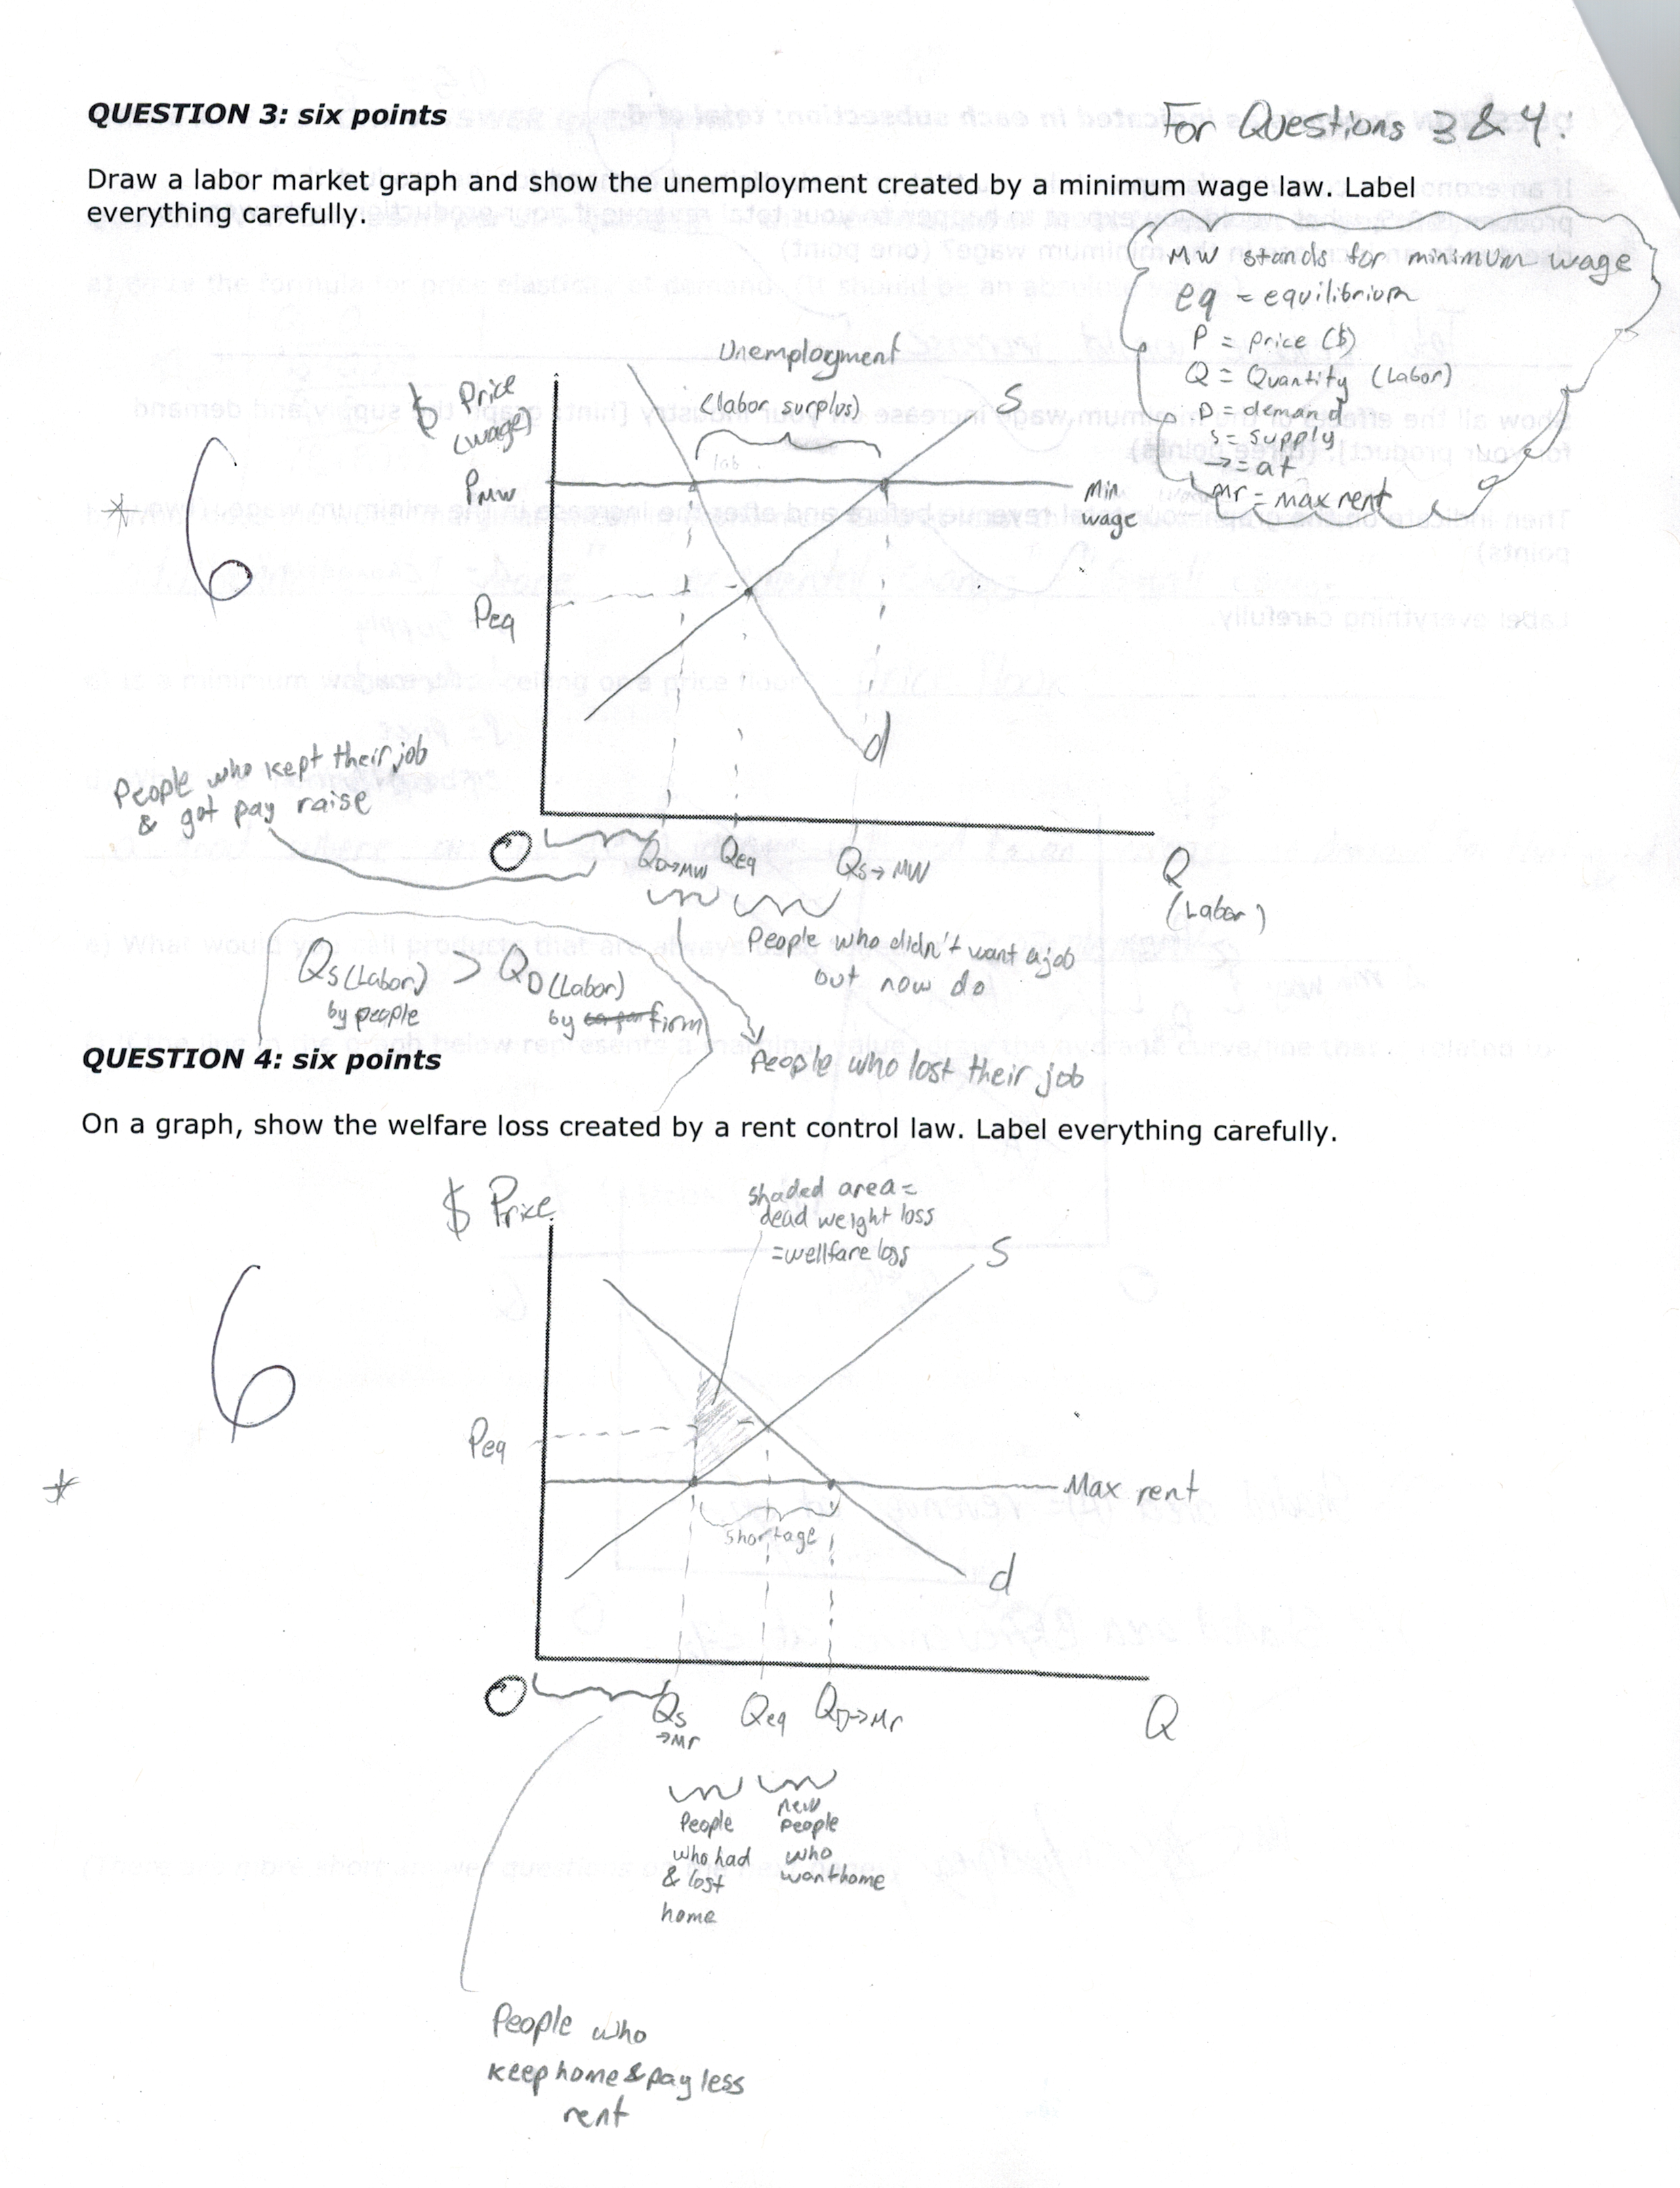 QUESTION 3: six points
For Questions 3 & 4:
Draw a labor market graph and show the unemployment created by a minimum wage law. Label
everything carefully.
MW stands for minimum wage
eq = equilibrium
P = price ($)
Q = Quantity (Labor)
D = demand
S = supply
→ = at
Mr = max rent
Unemployment
(labor surplus)
$ Price
(wage)
S
PMW
Min
wage
6
Peq
d
People who kept their job
& got pay raise
O
QD→MW
Qeq
QS→MW
Q
(Labor)
People who didn't want a job
but now do
QS (Labor) > QD (Labor)
by people
by firm
People who lost their job
QUESTION 4: six points
On a graph, show the welfare loss created by a rent control law. Label everything carefully.
$ Price
shaded area =
dead weight loss
= wellfare loss
S
6
Peq
Max rent
shortage
d
O
QS
→Mr
Qeq
QD→Mr
Q
People
who had
& lost
home
new
people
who
want home
People who
keep home & pay less
rent